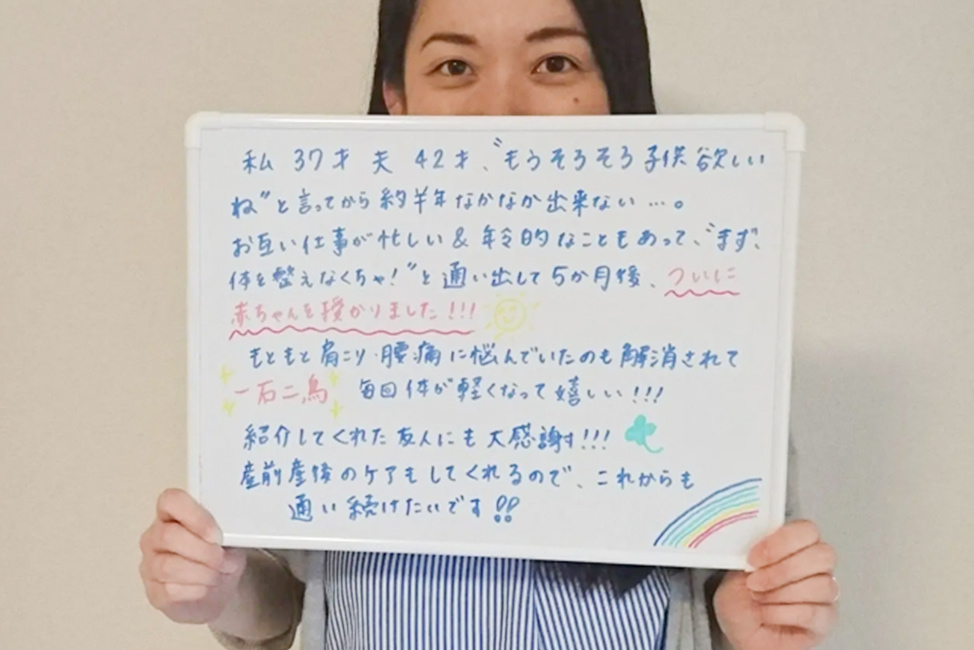 私 37才 夫 42才、"もうそろそろ子供欲しい
ね"と言ってから約半年なかなか出来ない…。
お互い仕事が忙しい&年令的なこともあって、"まず、
体を整えなくちゃ!"と通い出して5か月後、ついに
赤ちゃんを授かりました!!!
もともと肩こり・腰痛に悩んでいたのも解消されて
一石二鳥 毎回体が軽くなって嬉しい!!!
紹介してくれた友人にも大感謝!!!
産前産後のケアもしてくれるので、これからも
通い続けたいです!!